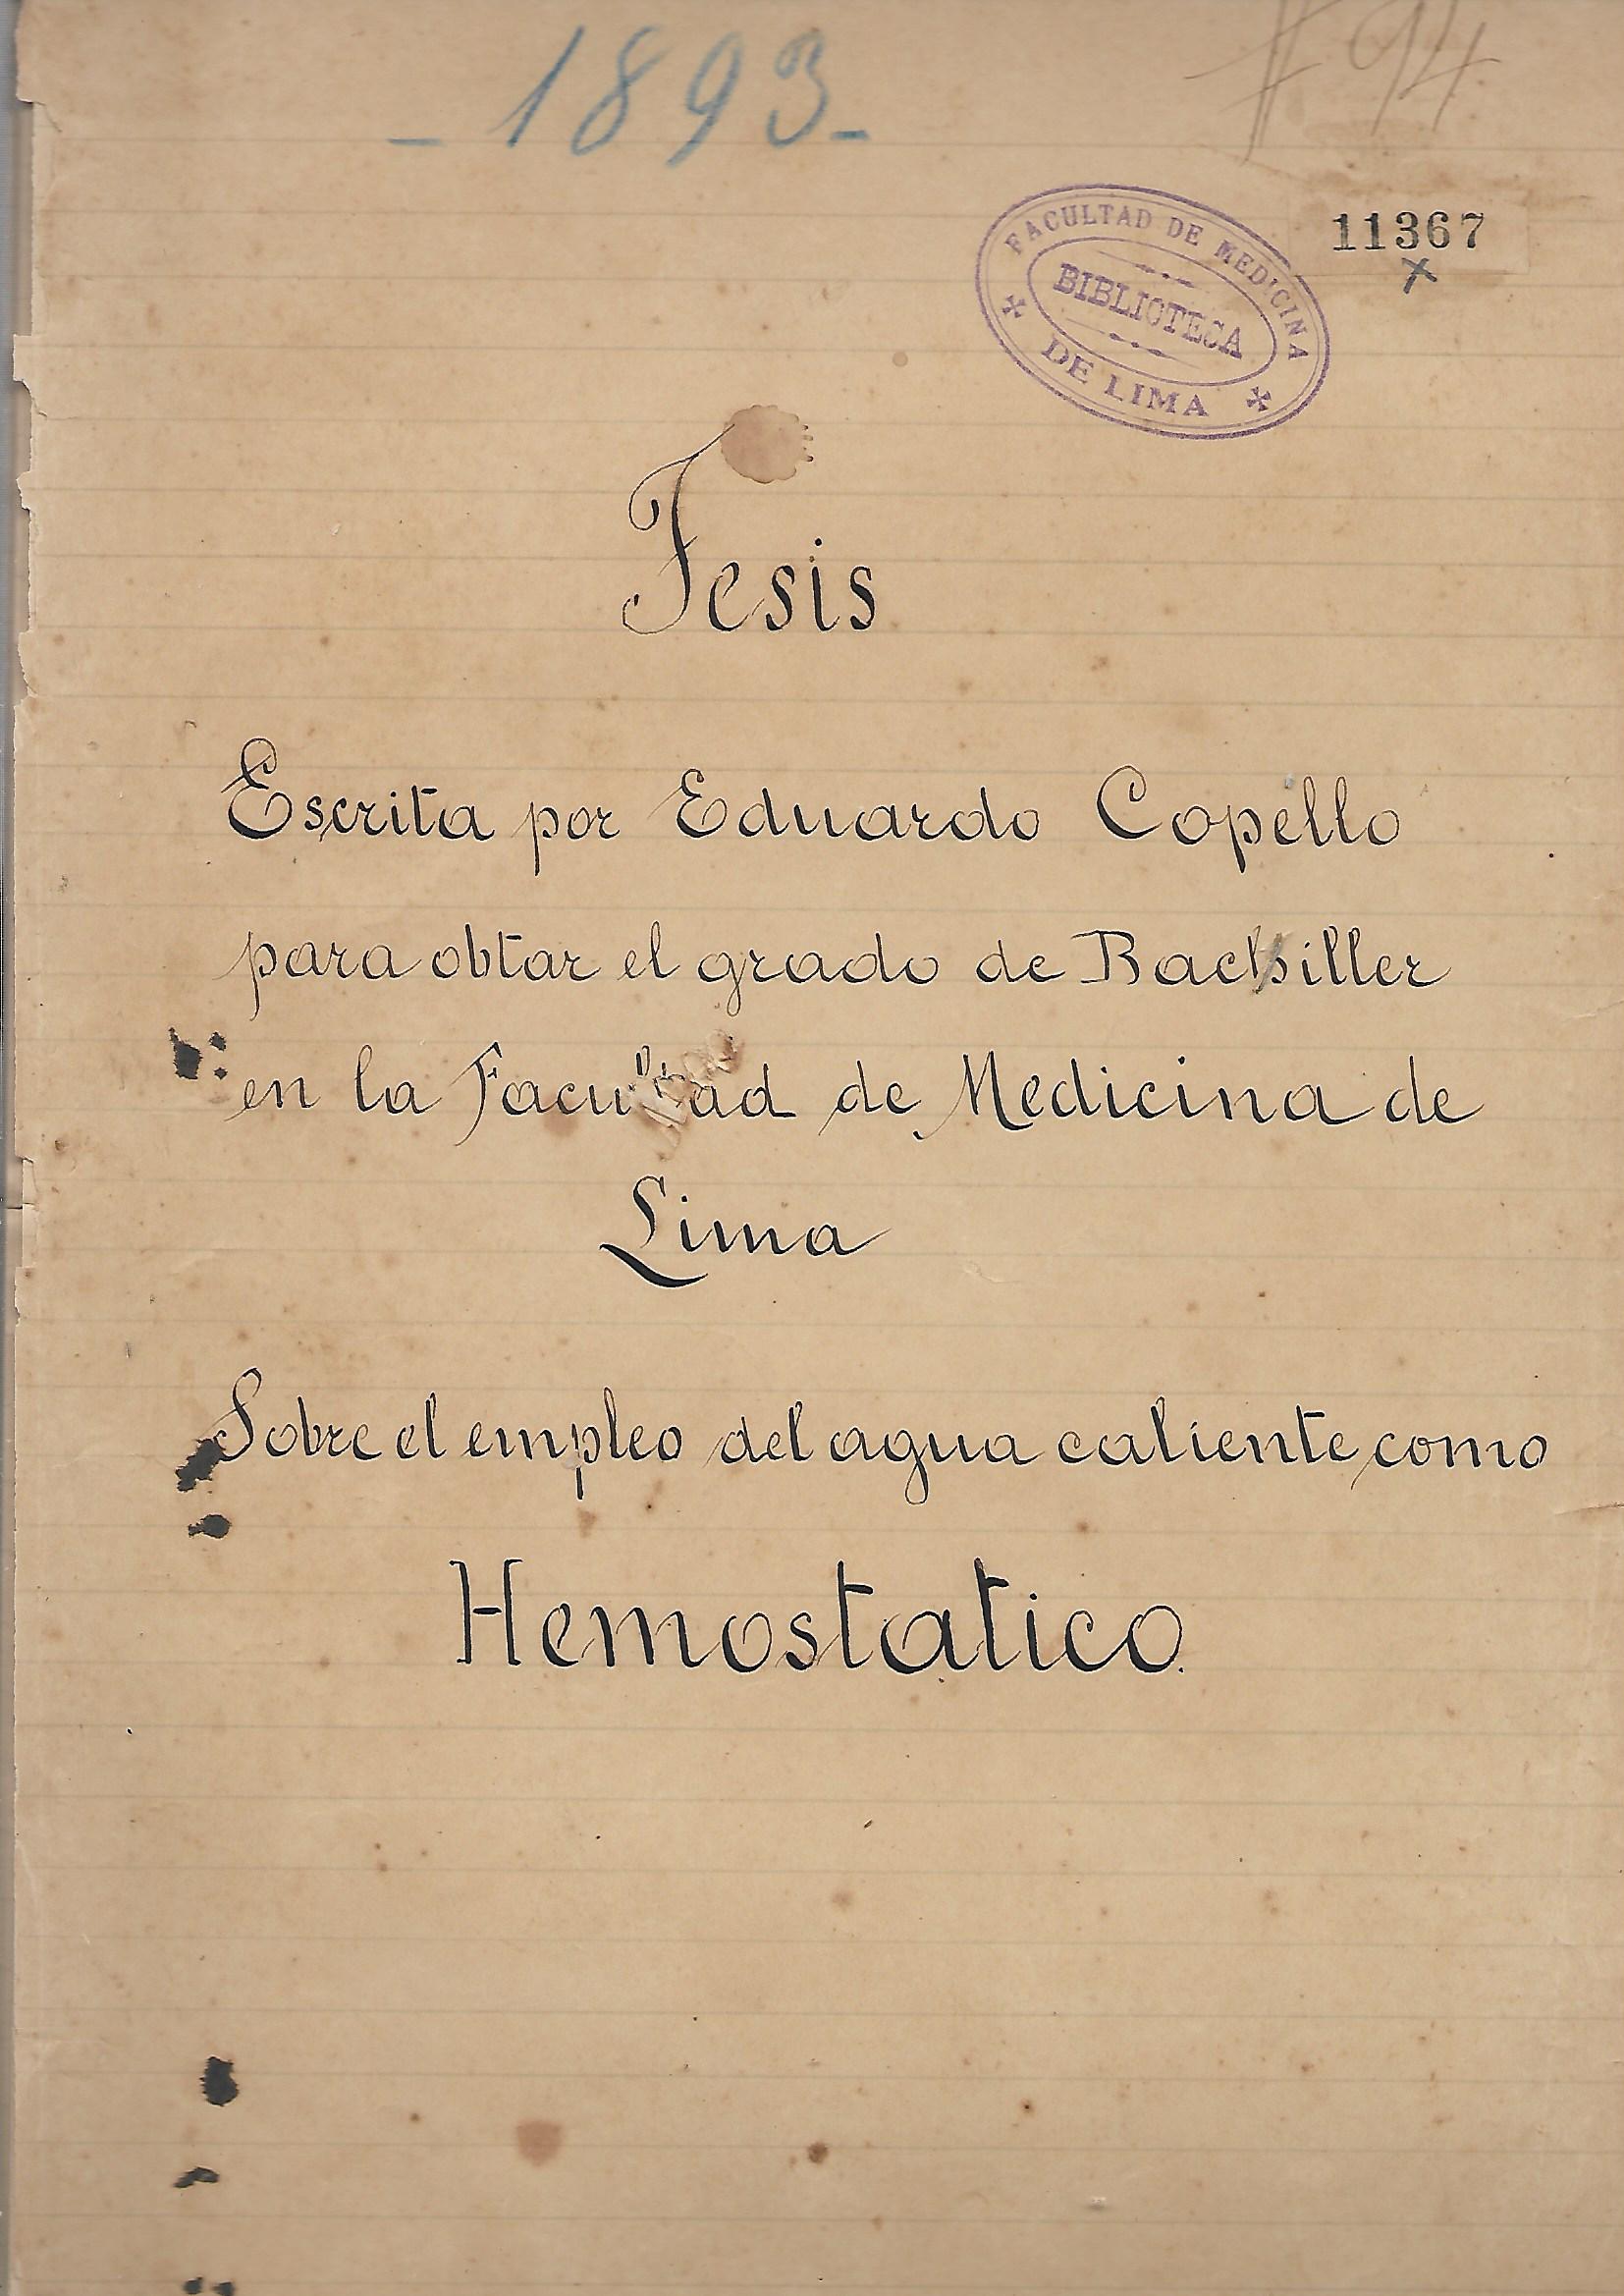 - 1893 -
# 94
FACULTAD DE MEDICINA
BIBLIOTECA
DE LIMA
11367
x
Tesis
Escrita por Eduardo Copello
para obtar el grado de Bachiller
en la Facultad de Medicina de
Lima
Sobre el empleo del agua caliente como
Hemostatico.